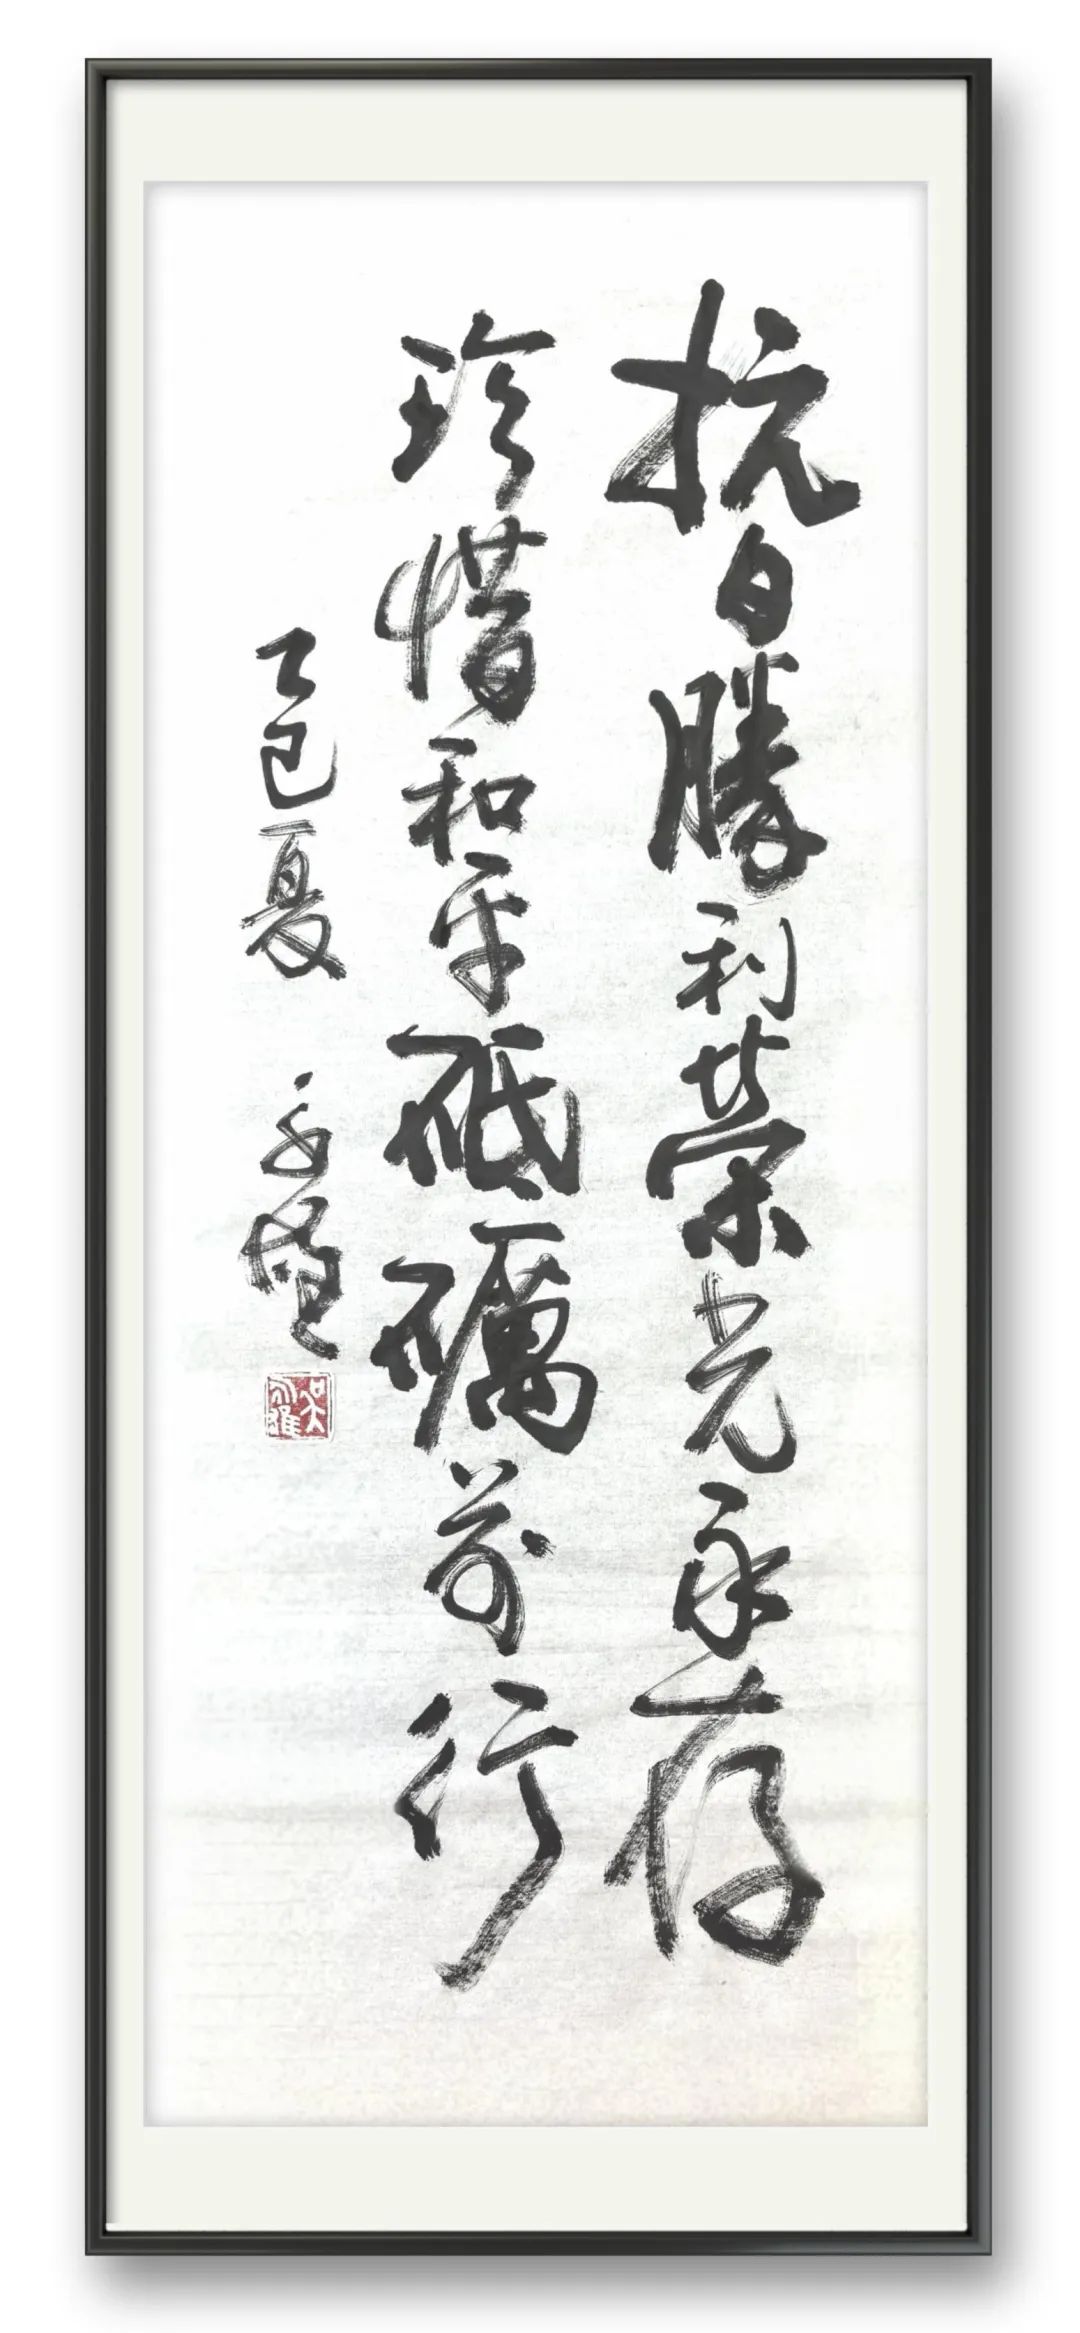 抗日勝利荣光永存
珍惜和平砥礪前行
乙巳夏